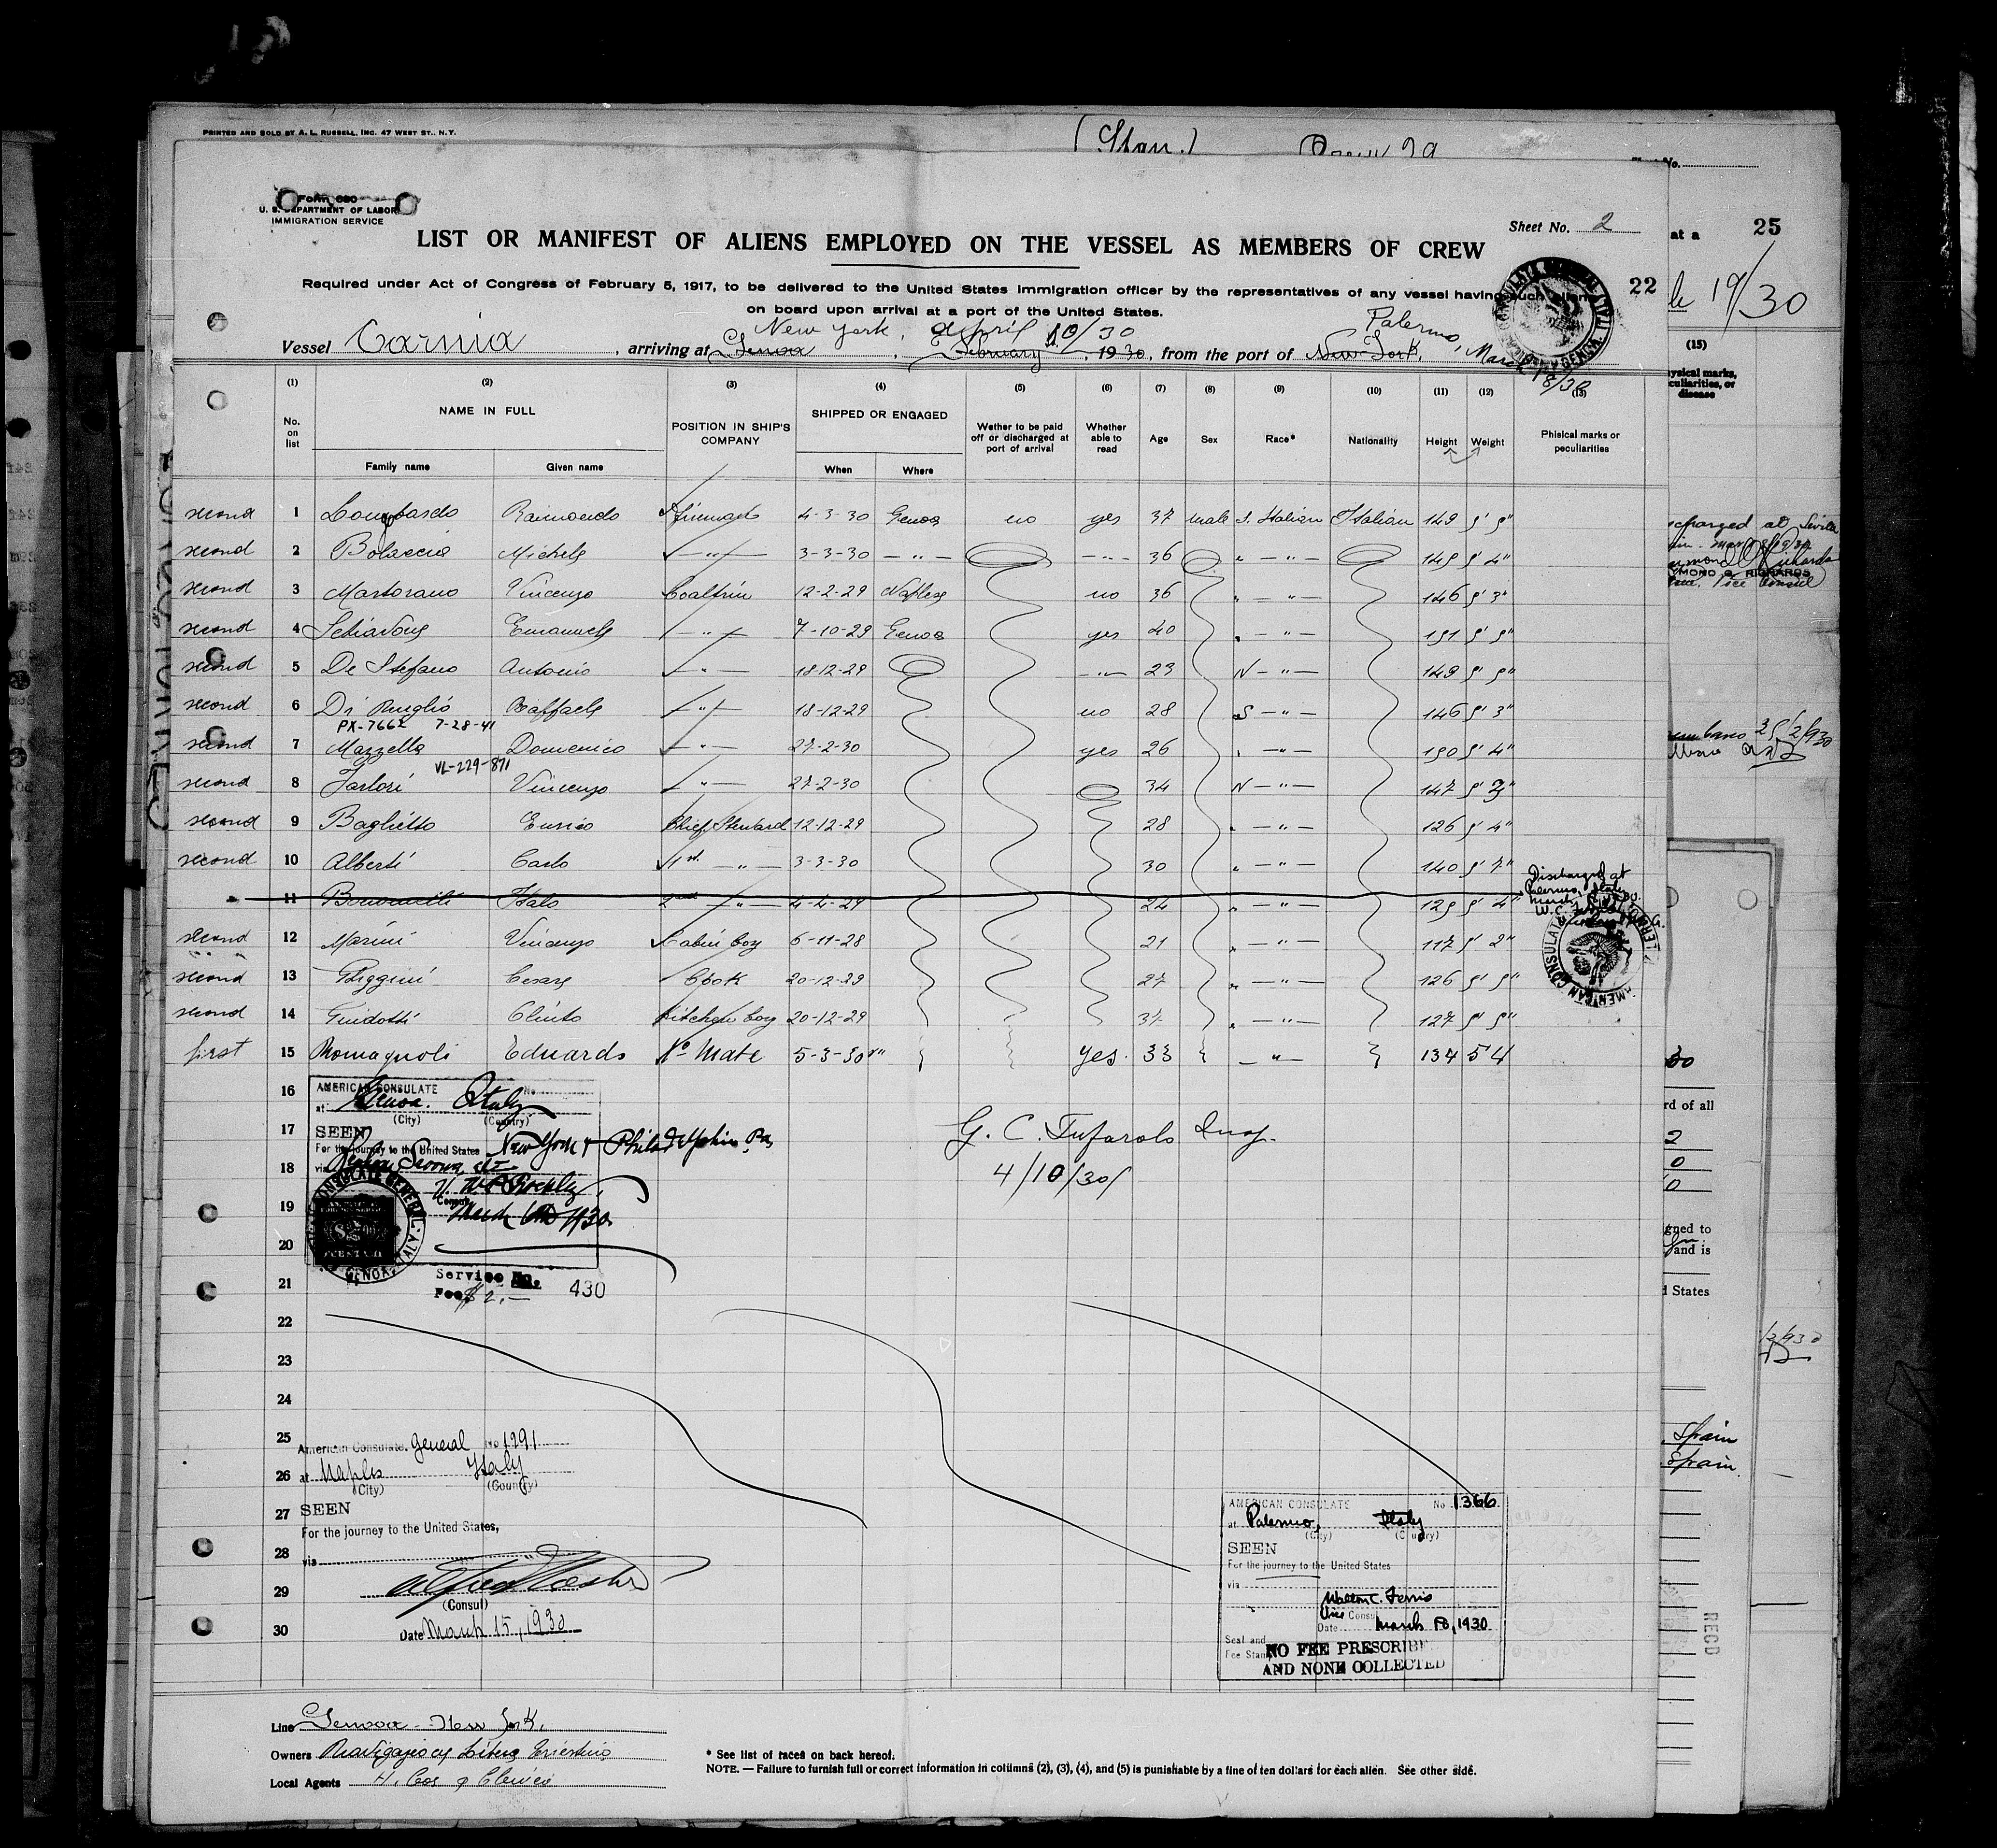 PRINTED AND SOLD BY A. L. RUSSELL, INC. 47 WEST ST., N.Y.
(Stan.)
No.
Form 680
U. S. DEPARTMENT OF LABOR
IMMIGRATION SERVICE
Sheet No. 2
LIST OR MANIFEST OF ALIENS EMPLOYED ON THE VESSEL AS MEMBERS OF CREW
at a 25
Required under Act of Congress of February 5, 1917, to be delivered to the United States Immigration officer by the representatives of any vessel having such aliens
22
19/30
on board upon arrival at a port of the United States.
New York, April 10/30 Palermo, March 18/30
Vessel Carnia, arriving at Genoa, February, 1930, from the port of New-York,
(1) (2) (3) (4) (5) (6) (7) (8) (9) (10) (11) (12) (13)
(15)
No. on list
NAME IN FULL
Family name Given name
POSITION IN SHIP'S COMPANY
SHIPPED OR ENGAGED
When Where
Wether to be paid off or discharged at port of arrival
Whether able to read
Age Sex Race* Nationality Height Weight
Phisical marks or peculiarities
ysical marks, culiarities, or disease
second 1 Lombardo Raimondo Fireman 4-3-30 Genoa no yes 37 male S. Italian Italian 149 5' 5"
second 2 Michele — " — 3-3-30 — " — — " — 36 " — " — 149 5' 4"
second 3 Martorano Vincenzo Coaltrim 12-2-29 Naples no 36 " — " — 146 5' 3"
second 4 Schiavone Emanuele — " — 7-10-29 Genoa yes 40 " — " — 151 5' 5"
second 5 De Stefano Antonio — " — 18-12-29 — " — 23 N — " — 149 5' 5"
second 6 Raffaele — " — 18-12-29 no 28 S — " — 146 5' 3"
PX-7662 7-28-41
second 7 Mazzella Domenico — " — 27-2-30 yes 26 " — " — 150 5' 4"
VL-229-871
second 8 Vincenzo — " — 27-2-30 34 N — " — 147 5' 3"
second 9 Baglietto Enrico Chief Steward 12-12-29 28 " — " — 126 5' 4"
second 10 Alberti Carlo 1st — " — 3-3-30 30 " 140 5' 7"
11 Italo 2nd — " — 4-4-29 24 " — " — 125 5' 4"
Discharged at Palermo, Italy
second 12 Marini Vincenzo Cabin boy 6-11-28 21 " — " — 117 5' 2"
second 13 Cesare Cook 20-12-29 27 " — " — 126 5' 5"
second 14 Guidotti Clinto Kitchen boy 20-12-29 37 " — " — 127 5' 5"
first 15 Romagnoli Eduardo Mate 5-3-30 " yes. 33 — " — 134 5 4
16
AMERICAN CONSULATE No
at Genoa. Italy
(City) (Country)
17
SEEN
For the journey to the United States New York & Philadelphia Pa,
18
via
19
Consul
March 6th 1930
20
GENOA
21
Service No. 430
Fee $2.—
G. C. Tufarolo Insp.
4/10/30
22
23
24
25
American Consulate General No 1291
26
at Naples Italy
(City) (Country)
27
SEEN
For the journey to the United States,
28
via
29
(Consul)
30
Date March 15, 1930
AMERICAN CONSULATE No 1366
at Palermo, Italy
(City) (Country)
SEEN
For the journey to the United States
via
Walton C. Ferris
Vice Consul
Date March 18, 1930
Seal and
Fee Stamp
NO FEE PRESCRIBED
AND NONE COLLECTED
rd of all
gned to
and is
d States
Spain
Spain.
RECD
Line Genova - New York.
Owners Libera Triestina
Local Agents
* See list of races on back hereof.
NOTE. — Failure to furnish full or correct information in columns (2), (3), (4), and (5) is punishable by a fine of ten dollars for each alien. See other side.